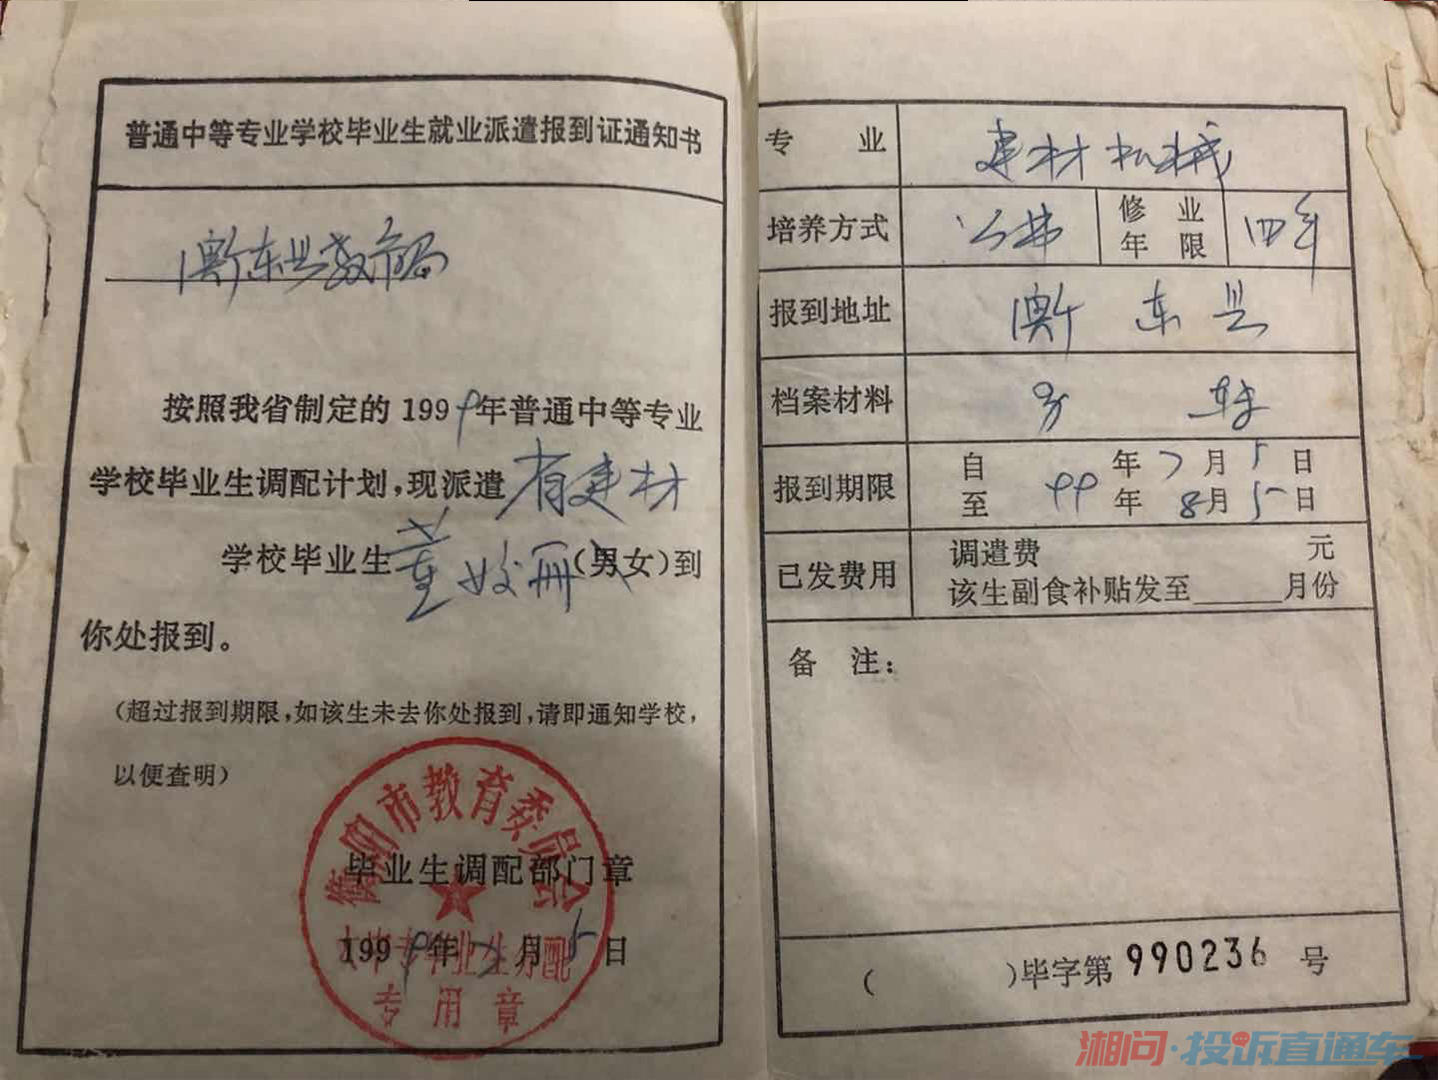 普通中等专业学校毕业生就业派遣报到证通知书
衡东县教育局
按照我省制定的1999年普通中等专业
学校毕业生调配计划,现派遣省建材
学校毕业生董姣丽(男女)到
你处报到。
(超过报到期限,如该生未去你处报到,请即通知学校,
以便查明)
衡阳市教育委员会
毕业生调配部门章
1999年7月5日
大中专毕业生分配
专用章
专 业 建材机械
培养方式 公费 修业年限 四年
报到地址 衡东县
档案材料 另 转
报到期限 自 99年7月5日
至 99年8月5日
已发费用 调遣费 元
该生副食补贴发至______月份
备 注:
( )毕字第990236号
湘问·投诉直通车